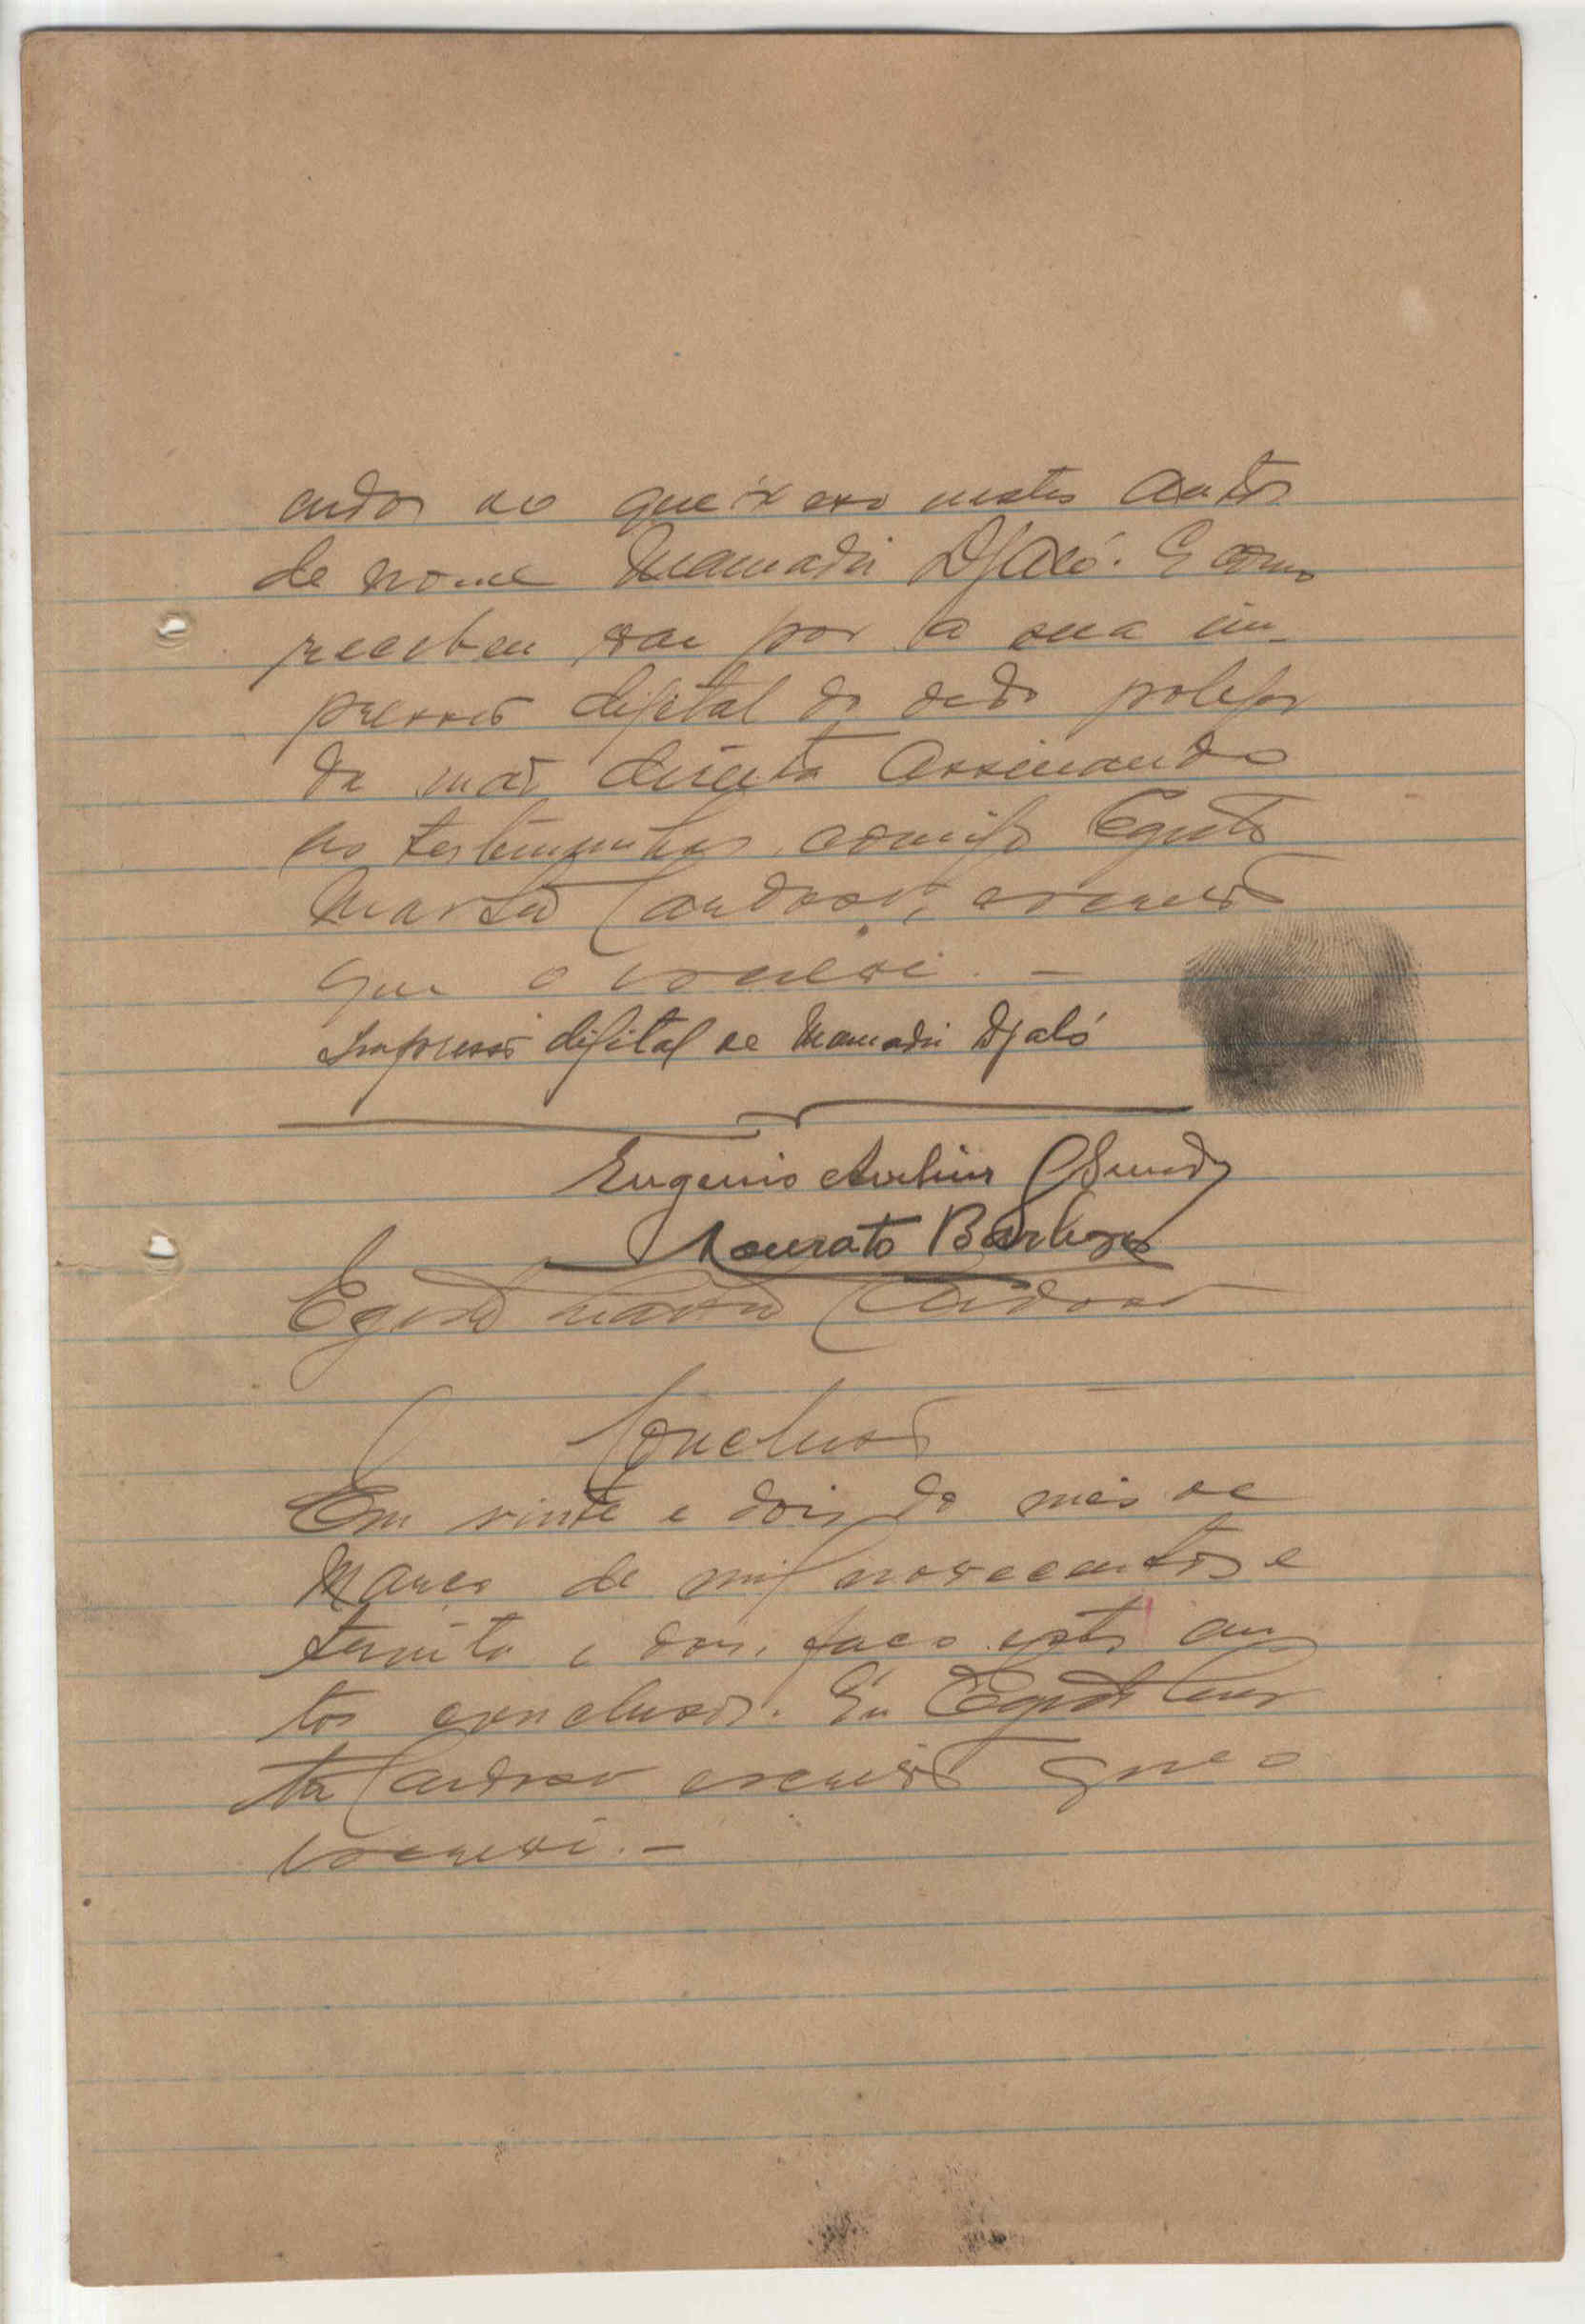 cudos ao queixoso nestes autos
de nome Mamadú Djaló. E como
recebeu vai por a sua im-
pressão digital do dedo polegar
da mão direita assinando
as testemunhas, comigo Egisto
Martins Cardoso, escrivão
que o escrevi. —
Impressão digital de Mamadú Djaló
Eugenio Avelino
Lourato Barbosa
Cardoso
Conclusão
Em vinte e dois do mês de
Março de mil novecentos e
trinta e dois, faço estes au
tos conclusos. Eu
Cardoso escrivão que o
escrevi. —